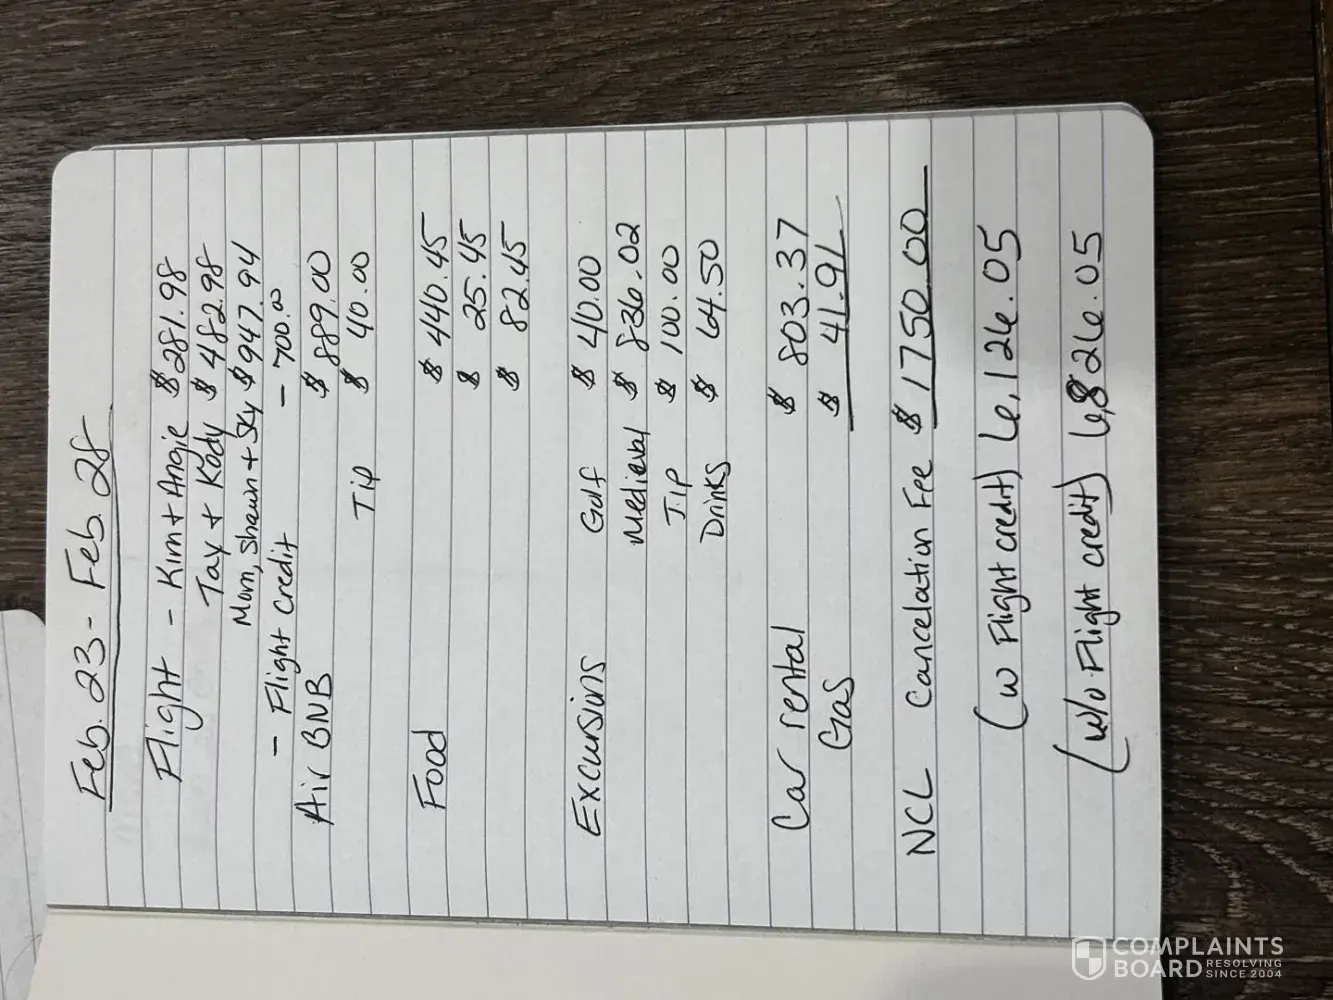 Feb. 23 - Feb. 28
Flight - Kim + Angie $281.98
Tay + Kody $482.98
Mom, Shawn + Sky $947.94
- Flight credit - 700.00
Air BNB $889.00
Tip $40.00
Food $440.45
$25.45
$82.45
Excursions Golf $40.00
Medieval $836.02
Tip $100.00
Drinks $64.50
Car rental $803.37
Gas $41.91
NCL Cancelation Fee $1750.00
(w Flight credit) 6,126.05
(w/o Flight credit) 6,826.05
COMPLAINTS
BOARD RESOLVING
SINCE 2004